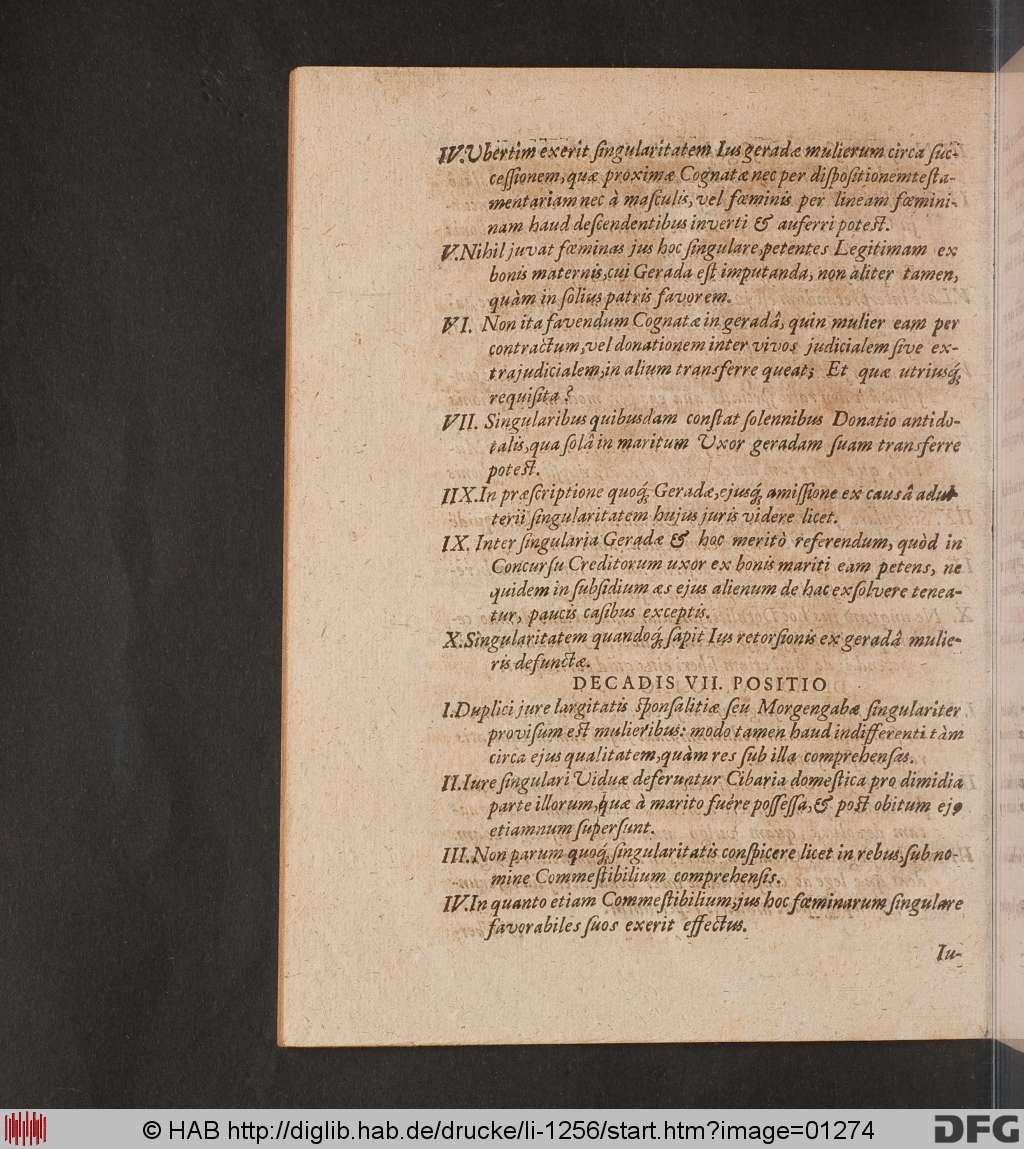 IV. Ubertim exerit singularitatem Ius geradæ mulierum circa suc-
cessionem, quæ proximæ Cognatæ nec per dispositionem testa-
mentariam nec à masculis, vel fœminis per lineam fœmini-
nam haud descendentibus inverti & auferri potest.
V. Nihil juvat fœminas jus hoc singulare, petentes Legitimam ex
bonis maternis, cui Gerada est imputanda, non aliter tamen,
quàm in solius patris favorem.
VI. Non ita favendum Cognatæ in geradâ, quin mulier eam per
contractum, vel donationem inter vivos judicialem sive ex-
trajudicialem, in alium transferre queat; Et quæ utriusq́;
requisita?
VII. Singularibus quibusdam constat solennibus Donatio antido-
talis, qua solâ in maritum Uxor geradam suam transferre
potest.
IIX. In præscriptione quoq́; Geradæ, ejusq́; amissione ex causâ adul-
terii singularitatem hujus juris videre licet.
IX. Inter singularia Geradæ & hoc meritò referendum, quòd in
Concursu Creditorum uxor ex bonis mariti eam petens, ne
quidem in subsidium æs ejus alienum de hac exsolvere tenea-
tur, paucis casibus exceptis.
X. Singularitatem quandoq́; sapit Ius retorsionis ex geradâ mulie-
ris defunctæ.
DECADIS VII. POSITIO
I. Duplici jure largitatis sponsalitiæ seu Morgengabæ singulariter
provisum est mulieribus: modo tamen haud indifferenti tàm
circa ejus qualitatem, quàm res sub illa comprehensas.
II. Iure singulari Viduæ deferuntur Cibaria domestica pro dimidia
parte illorum, quæ à marito fuére possessa, & post obitum ejꝰ
etiamnum supersunt.
III. Non parum quoq́; singularitatis conspicere licet in rebus, sub no-
mine Commestibilium comprehensis.
IV. In quanto etiam Commestibilium, jus hoc fœminarum singulare
favorabiles suos exerit effectus.
Iu-
© HAB http://diglib.hab.de/drucke/li-1256/start.htm?image=01274
DFG